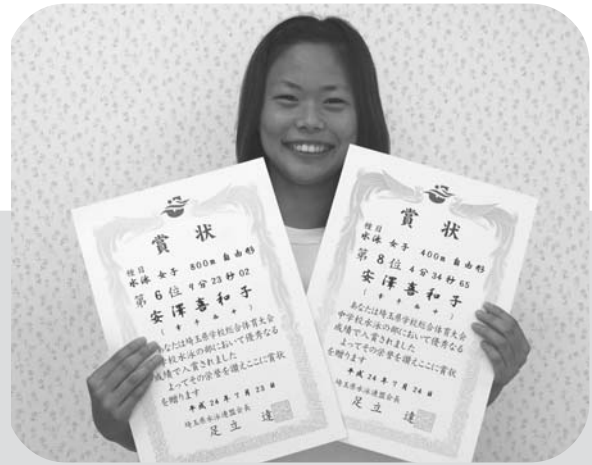 賞状
種目
水泳 女子 800m 自由形
第6位 9分23秒02
安澤喜和子
あなたは埼玉県学校総合体育大会
中学校水泳の部において優秀なる
成績で入賞されました
よってその栄誉を讃えここに賞状
を贈ります
平成24年7月23日
埼玉県水泳連盟会長
足立 達
賞状
種目
水泳 女子 400m 自由形
第8位 4分34秒65
安澤喜和子
あなたは埼玉県学校総合体育大会
中学校水泳の部において優秀なる
成績で入賞されました
よってその栄誉を讃えここに賞状
を贈ります
平成24年7月24日
埼玉県水泳連盟会長
足立 達